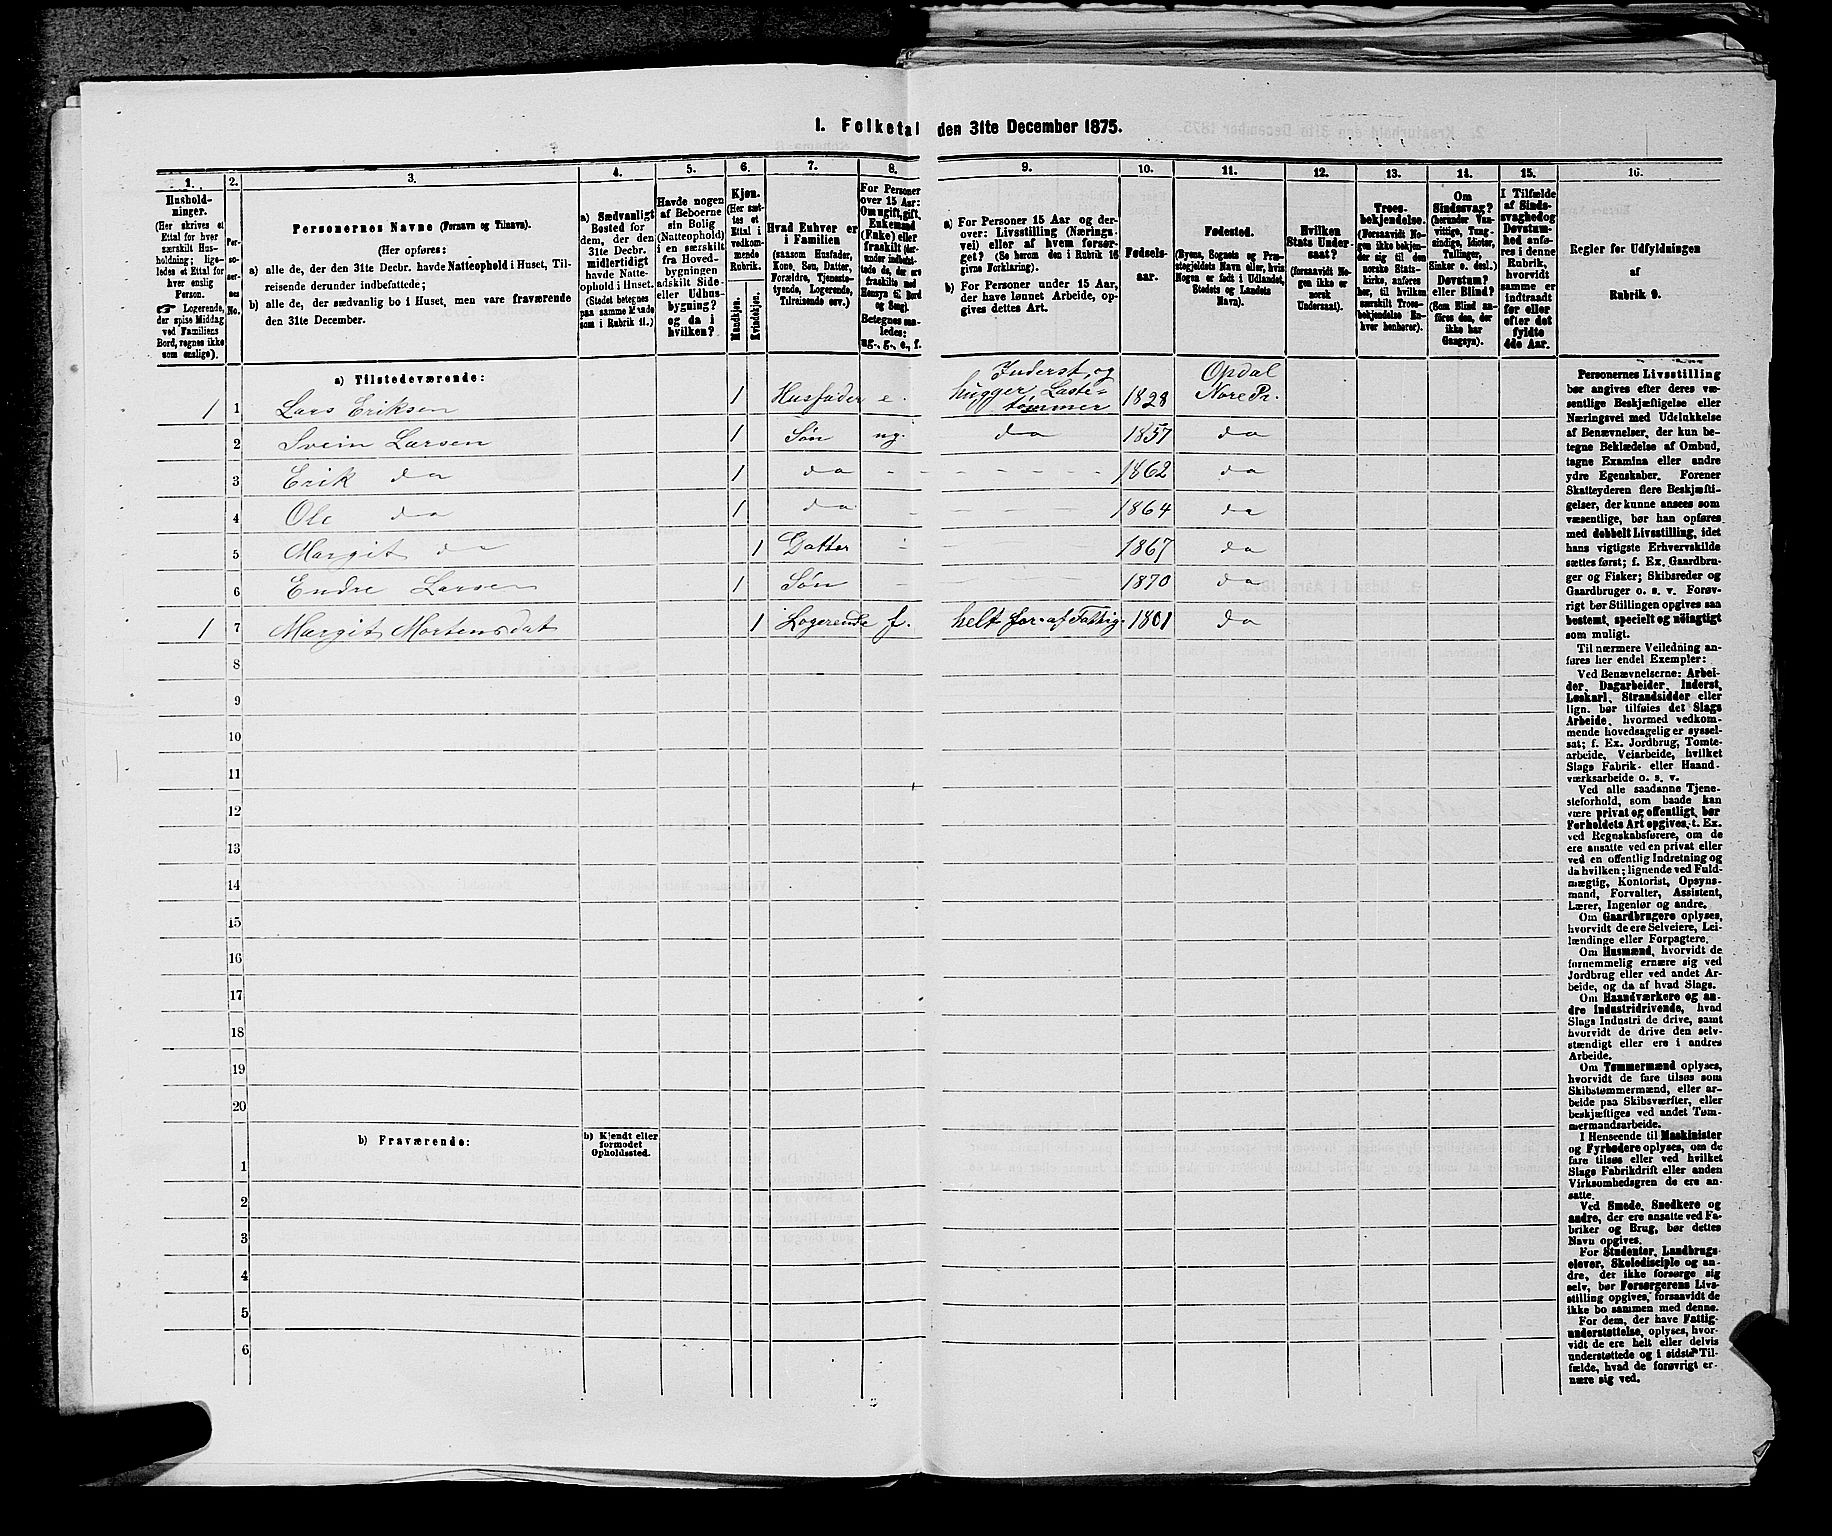 I. Folketal den 31te December 1875.
1. 2. 3. 4. 5. 6. 7. 8. 9. 10. 11. 12. 13. 14. 15. 16.
Hushold-
ninger.
(Her skrives et
Ettal for hver
særskilt Hus-
holdning; lige-
ledes et Ettal for
hver enslig
Person.
☞ Logerende,
der spise Middag
ved Familiens
Bord, regnes ikke
som enslige).
Per-
so-
ner-
nes
No.
Personernes Navne (Fornavn og Tilnavn).
(Her opføres:
a) alle de, der den 31te Decbr. havde Natteophold i Huset, Til-
reisende derunder indbefattede;
b) alle de, der sædvanlig bo i Huset, men vare fraværende
den 31te December.
a) Sædvanligt
Bosted for
dem, der den
31te Decbr.
midlertidigt
havde Natte-
ophold i Huset.
(Stedet betegnes
paa samme Maade
som i Rubrik 11.)
Havde nogen
af Beboerne
sin Bolig
(Natteophold)
i en særskilt
fra Hoved-
bygningen
adskilt Side-
eller Udhus-
bygning?
og da i
hvilken?
Kjøn.
(Her sæt-
tes et
Ettal i
vedkom-
mende
Rubrik.
Mandkjøn.
Kvindekjøn.
Hvad Enhver er
i Familien
(saasom Husfader,
Kone, Søn, Datter,
Forældre, Tjeneste-
tyende, Logerende,
Tilreisende osv.)
For Personer
over 15 Aar:
Om ugift, gift,
Enkemand
(Enke) eller
fraskilt
Betegnes saa-
ledes:
ug., g., e., f.
a) For Personer 15 Aar og der-
over: Livsstilling (Nærings-
vei) eller af hvem forsør-
get (Se herom den i Rubrik 16
givne Forklaring).
b) For Personer under 15 Aar,
der have lønnet Arbeide, op-
gives dettes Art.
Fødsels-
aar.
Fødested.
(Byens, Sognets og Præ-
stegjeldets Navn eller, hvis
Nogen er født i Udlandet,
Stedets og Landets
Navn).
Hvilken
Stats Under-
saat?
(forsaavidt No-
gen ikke er
norsk
Undersaat).
Troes-
bekjendelse.
(Forsaavidt No-
gen ikke bekjen-
der sig til den
norske Stats-
kirke, anføres
her, til hvilken
særskilt Troes-
bekjendelse En-
hver henhører).
Om
Sindssvag?
(herunder Van-
vittige, Tung-
sindige, Idioter,
Tullinger,
Sinker o. desl.)
Døvstum?
eller Blind?
(Som Blind an-
føres den, der
ikke har
Gangsyn).
I Tilfælde
af Sinds-
svaghed og
Døvstum-
hed anfø-
res i denne
Rubrik,
hvorvidt
samme er
indtraadt
før eller
efter det
fyldte
4de Aar.
Regler for Udfyldningen
af
Rubrik 9.
a) Tilstedeværende:
1 1 Lars Eriksen 1 Husfader e. Inderst, og hugger Laste-tømmer 1828 Opdal Nore Pr.
2 Svein Larsen 1 Søn ug. do 1857 do
3 Erik do 1 do 1862 do
4 Ole do 1 do 1864 do
5 Margit do 1 Datter 1867 do
6 Endre Larsen 1 Søn 1870 do
1 7 Margit Mortensdat 1 Logerende f. helt for. af Fattig. 1801 do
8
9
10
11
12
13
14
15
16
17
18
19
20
b) Fraværende:
b) Kjendt eller
formodet
Opholdssted.
1
2
3
4
5
6
Personernes Livsstilling
bør angives efter deres væ-
sentlige Beskjæftigelse eller
Næringsvei med Udelukkelse
af Benævnelser, der kun be-
tegne Beklædelse af Ombud,
tagne Examina eller andre
ydre Egenskaber. Forener
Skatteyderen flere Beskjæfti-
gelser, der kunne ansees som
væsentlige, bør han opføres
med dobbelt Livsstilling, idet
hans vigtigste Erhvervskilde
sættes først; f. Ex. Gaardbru-
ger og Fisker; Skibsreder og
Gaardbruger o. s. v. Forøv-
rigt bør Stillingen opgives saa
bestemt, specielt og nöiagtigt
som muligt.
Til nærmere Veiledning an-
føres her endel Exempler:
Ved Benævnelserne: Arbei-
der, Dagarbeider, Inderst,
Løskarl, Strandsidder eller
lign. bør tilføies det Slags
Arbeide, hvormed vedkom-
mende hovedsagelig er syssel-
sat; f. Ex. Jordbrug, Tomte-
arbeide, Veiarbeide, hvilket
Slags Fabrik- eller Haand-
værksarbeide o. s. v.
Ved alle saadanne Tjene-
steforhold, som baade kan
være privat og offentligt, bør
Forholdets Art opgives, t. Ex.
ved Regnskabsførere, om de
ere ansatte ved en privat eller
ved en offentlig Indretning og
da hvilken; lignende ved Fuld-
mægtig, Kontorist, Opsyns-
mand, Forvalter, Assistent,
Lærer, Ingeniør og andre.
Om Gaardbrugere oplyses,
hvorvidt de ere Selveiere, Lei-
lændinge eller Forpagtere.
Om Husmænd, hvorvidt de
fornemmelig ernære sig ved
Jordbrug eller ved andet Ar-
beide, og da af hvad Slags.
Om Haandværkere og an-
dre Industridrivende, hvad
Slags Industri de drive, samt
hvorvidt de drive den selv-
stændigt eller ere i andres
Arbeide.
Om Tømmermænd oplyses,
hvorvidt de fare tilsøs som
Skibstømmermænd, eller ar-
beide paa Skibsværfter, eller
beskjæftiges ved andet Tøm-
mermandsarbeide.
I Henseende til Maskinister
og Fyrbødere oplyses, om de
fare tilsøs eller ved hvilket
Slags Fabrikdrift eller anden
Virksomhedsgren de ere an-
satte.
Ved Smede, Snedkere og
andre, der ere ansatte ved Fa-
briker og Brug, bør dettes
Navn opgives.
For Studenter, Landbrugs-
elever, Skoledisciple og an-
dre, der ikke forsørge sig
selv, bør Forsørgerens Livs-
stilling opgives, forsaavidt de
ikke bo sammen med denne.
For dem, der have Fattig-
understøttelse, oplyses, hvor-
vidt de ere helt eller delvis
understøttede og i sidste Til-
fælde, hvad de forøvrigt er-
nære sig ved.